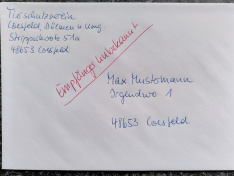 Tierschutzverein
Coesfeld, Dülmen u. Umg.
48653 Coesfeld
Empfänger unbekannt
Max Mustermann
Irgendwo 1
48653 Coesfeld